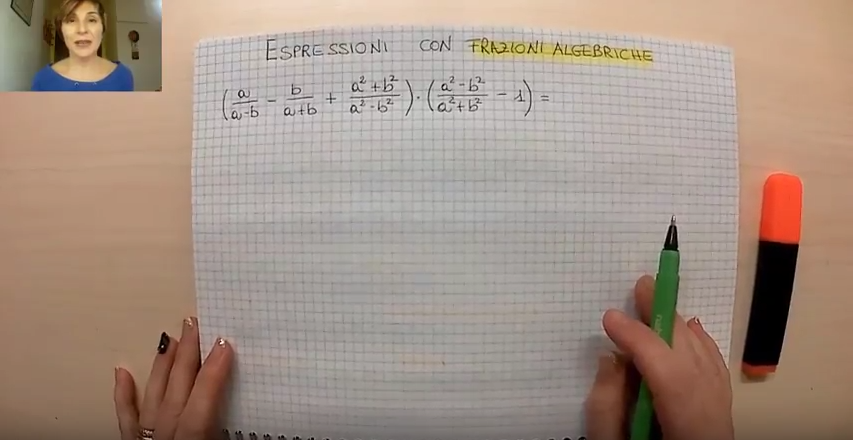 ESPRESSIONI CON FRAZIONI ALGEBRICHE
(a/(a-b) - b/(a+b) + (a²+b²)/(a²-b²)) · ((a²-b²)/(a²+b²) - 1) =